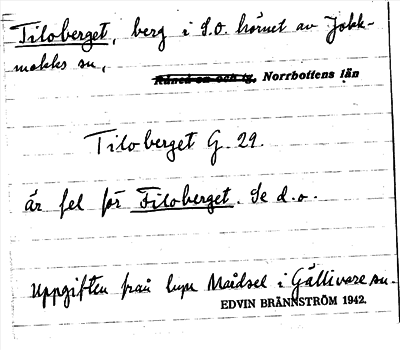 Tiloberget, berg i S.O. hörnet av Jokk-
mokks sn,
Råneå sn och tg, Norrbottens län
Tiloberget G 29.
är fel för Filoberget. Se d.o.
Uppgiften från Maådsel i Gällivare sn.
EDVIN BRÄNNSTRÖM 1942.